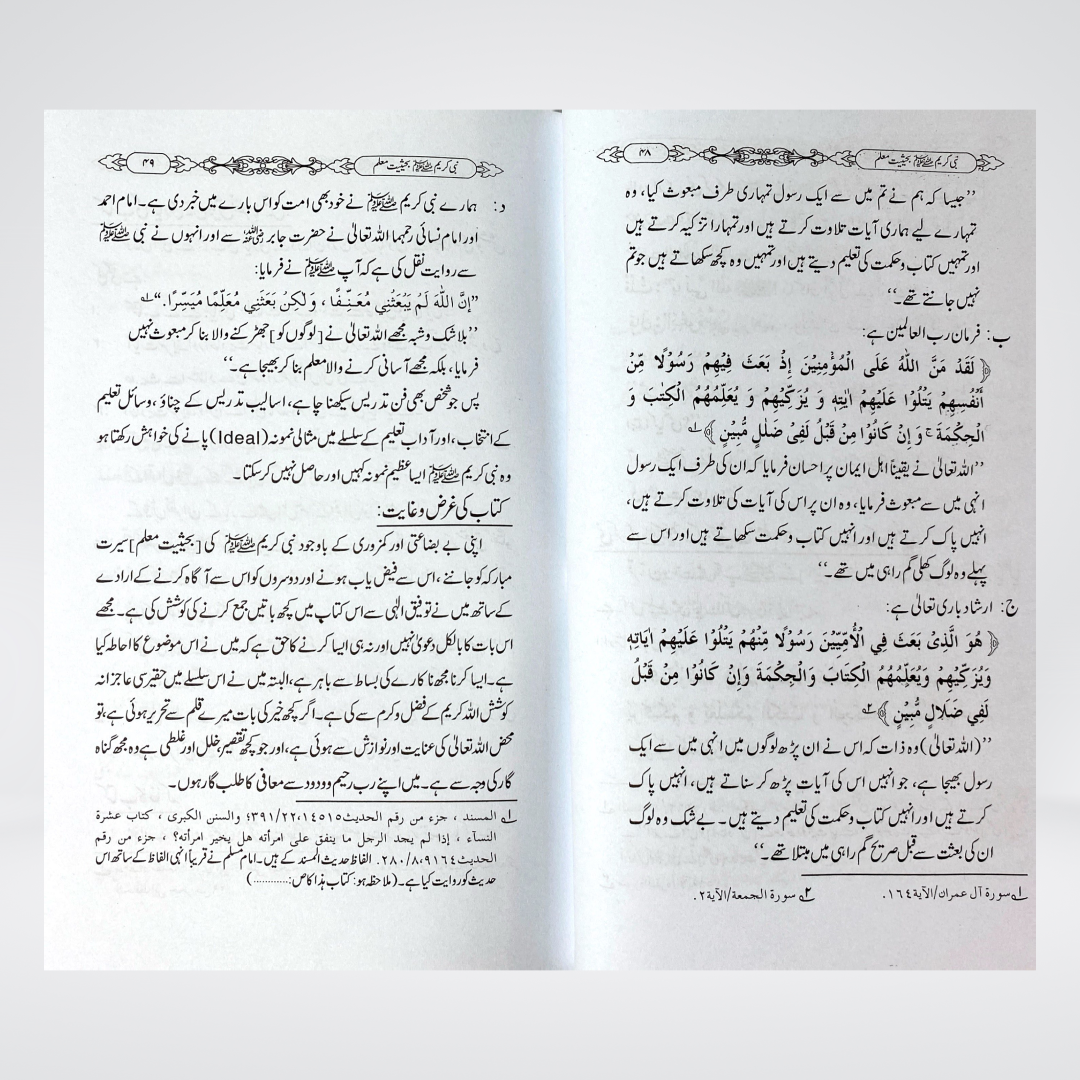 نبی کریم ﷺ بحیثیت معلم
۴۸
’’جیسا کہ ہم نے تم میں سے ایک رسول تمہاری طرف مبعوث کیا، وہ
تمہارے لیے ہماری آیات تلاوت کرتے ہیں اور تمہارا تزکیہ کرتے ہیں
اور تمہیں کتاب و حکمت کی تعلیم دیتے ہیں اور تمہیں وہ کچھ سکھاتے ہیں جو تم
نہیں جانتے تھے۔‘‘
ب: فرمان رب العالمین ہے:
﴿لَقَدْ مَنَّ اللّٰهُ عَلَى الْمُؤْمِنِيْنَ اِذْ بَعَثَ فِيْهِمْ رَسُوْلًا مِّنْ
اَنْفُسِهِمْ يَتْلُوْا عَلَيْهِمْ اٰيٰتِهٖ وَ يُزَكِّيْهِمْ وَ يُعَلِّمُهُمُ الْكِتٰبَ وَ
الْحِكْمَةَ ۚ وَ اِنْ كَانُوْا مِنْ قَبْلُ لَفِىْ ضَلٰلٍ مُّبِيْنٍ﴾ ۱؎
’’اللہ تعالیٰ نے یقیناً اہل ایمان پر احسان فرمایا کہ ان کی طرف ایک رسول
انہی میں سے مبعوث فرمایا، وہ ان پر اس کی آیات کی تلاوت کرتے ہیں،
انہیں پاک کرتے ہیں اور انہیں کتاب و حکمت سکھاتے ہیں اور اس سے
پہلے وہ لوگ کھلی گم راہی میں تھے۔‘‘
ج: ارشاد باری تعالیٰ ہے:
﴿هُوَ الَّذِىْ بَعَثَ فِي الْاُمِّيِّيْنَ رَسُوْلًا مِّنْهُمْ يَتْلُوْا عَلَيْهِمْ اٰيَاتِهٖ
وَيُزَكِّيْهِمْ وَيُعَلِّمُهُمُ الْكِتَابَ وَالْحِكْمَةَ وَاِنْ كَانُوْا مِنْ قَبْلُ
لَفِي ضَلَالٍ مُّبِيْنٍ﴾ ۲؎
’’(اللہ تعالیٰ) وہ ذات کہ اس نے ان پڑھ لوگوں میں انہی میں سے ایک
رسول بھیجا ہے، جو انہیں اس کی آیات پڑھ کر سناتے ہیں، انہیں پاک
کرتے ہیں اور انہیں کتاب و حکمت کی تعلیم دیتے ہیں۔ بے شک وہ لوگ
ان کی بعثت سے قبل صریح گم راہی میں مبتلا تھے۔‘‘
۱؎ سورة آل عمران/الآية ١٦٤. ۲؎ سورة الجمعة/الآية ٢.
نبی کریم ﷺ بحیثیت معلم
۴۹
د: ہمارے نبی کریم ﷺ نے خود بھی امت کو اس بارے میں خبر دی ہے۔ امام احمد
اور امام نسائی رحمہما اللہ تعالیٰ نے حضرت جابر رضی اللہ عنہ سے اور انہوں نے نبی ﷺ
سے روایت نقل کی ہے کہ آپ ﷺ نے فرمایا:
”إِنَّ اللّٰهَ لَمْ يَبْعَثْنِي مُعَنِّفًا ، وَلٰكِنْ بَعَثَنِي مُعَلِّمًا مُيَسِّرًا.“ ۱؎
’’بلا شک و شبہ مجھے اللہ تعالیٰ نے [لوگوں کو] جھڑکنے والا بنا کر مبعوث نہیں
فرمایا، بلکہ مجھے آسانی کرنے والا معلم بنا کر بھیجا ہے۔‘‘
پس جو شخص بھی فن تدریس سیکھنا چاہے، اسالیب تدریس کے چناؤ، وسائل تعلیم
کے انتخاب، اور آداب تعلیم کے سلسلے میں مثالی نمونہ (Ideal) پانے کی خواہش رکھتا ہو
وہ نبی کریم ﷺ ایسا عظیم نمونہ کہیں اور حاصل نہیں کر سکتا۔
کتاب کی غرض و غایت:
اپنی بے بضاعتی اور کمزوری کے باوجود نبی کریم ﷺ کی [بحیثیت معلم] سیرت
مبارکہ کو جاننے، اس سے فیض یاب ہونے اور دوسروں کو اس سے آگاہ کرنے کے ارادے
کے ساتھ میں نے توفیق الٰہی سے اس کتاب میں کچھ باتیں جمع کرنے کی کوشش کی ہے۔ مجھے
اس بات کا بالکل دعویٰ نہیں اور نہ ہی ایسا کرنے کا حق ہے کہ میں نے اس موضوع کا احاطہ کیا
ہے۔ ایسا کرنا مجھ ناکارے کی بساط سے باہر ہے، البتہ میں نے اس سلسلے میں حقیر سی عاجزانہ
کوشش اللہ کریم کے فضل و کرم سے کی ہے۔ اگر کچھ خیر کی بات میرے قلم سے تحریر ہوئی ہے، تو
محض اللہ تعالیٰ کی عنایت اور نوازش سے ہوئی ہے، اور جو کچھ تقصیر، خلل اور غلطی ہے وہ مجھ گناہ
گار کی وجہ سے ہے۔ میں اپنے رب رحیم و ودود سے معافی کا طلب گار ہوں۔
۱؎ المسند ، جزء من رقم الحديث ١٤٥١٥، ٢٢/٣٩١؛ والسنن الكبرى ، كتاب عشرة
النساء ، إذا لم يجد الرجل ما ينفق على امرأته هل يخير امرأته؟ ، جزء من رقم
الحديث ٩١٦٤، ٨/٢٨٠. الفاظ حدیث المسند کے ہیں۔ امام مسلم نے قریباً انہی الفاظ کے ساتھ اس
حدیث کو روایت کیا ہے۔ (ملاحظہ ہو: کتاب ہذا کا ص:............)